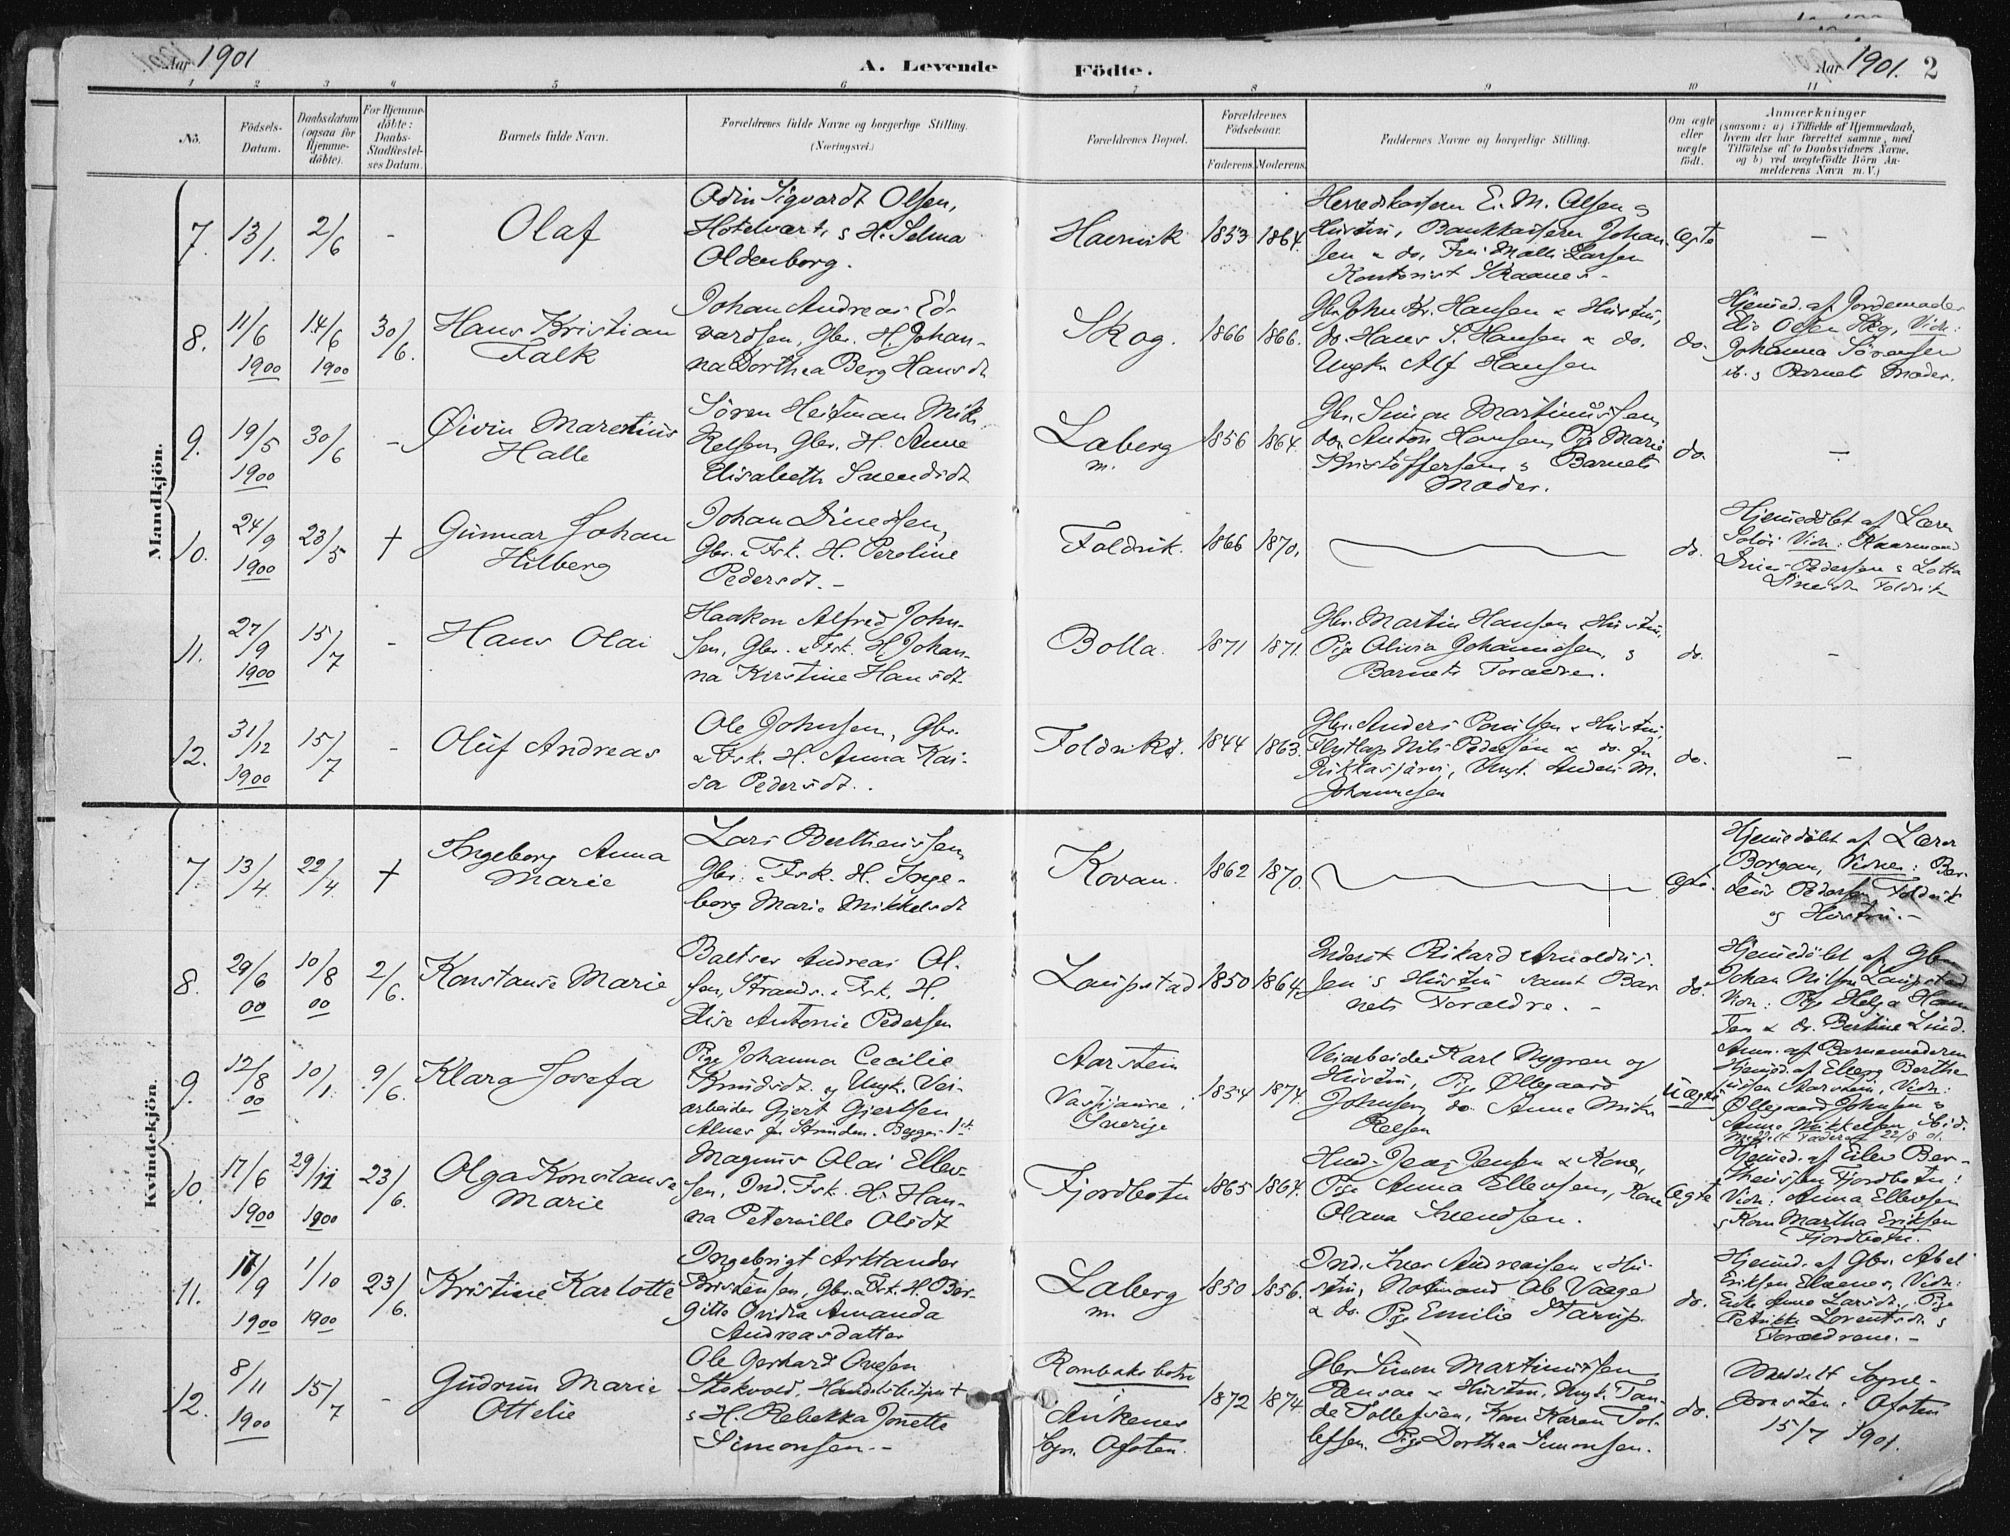 Aar 1901
A. Levende Födte.
Aar 1901. 2
1 2 3 4 5 6 7 8 9 10 11
No. Födsels-Datum. Daabsdatum (ogsaa for Hjemme-döbte). For Hjemme-döbte: Daabs-Stadfæstel-ses Datum. Barnets fulde Navn. Forældrenes fulde Navne og borgerlige Stilling. (Næringsvei.) Forældrenes Bopæl. Forældrenes Födselsaar. Faderens. Moderens. Faddernes Navne og borgerlige Stilling. Om ægte eller uægte födt. Anmærkninger (saasom: a) i Tilfælde af Hjemmedaab, hvem der har forrettet samme, med Tilföielse af to Daabsvidners Navne, og b) ved uægtefödte Börn Anmelderens Navn m. V.)
Mandkjön.
7. 13/1. 2/6 - Olaf
Odin Sigvardt Olsen,
Hotelvært, s H. Selma
Oldenborg.
Havnvik 1853 1864.
Herredskasserer E. M. Olsen s
Hustru, Bankkasserer Johan
sen & do. Frk Malli Larsen
Kontorist Skaanes -
ægte -
8. 11/6 1900 14/6 1900 30/6. Hans Kristian
Falk
Johan Andreas Ed-
vardsen, Gbr. H. Johan-
na Dorthea Berg Hansdt
Skog. 1866 1866.
Gbr. John Kr. Hansen & Hustru,
do. Hans S. Hansen & do.
Ungk. Alf Hansen
do.
Hjemmed. af Jordemoder
Elis Olsen Skog, Vidn:
Johanna Sörensen
ib. s Barnets Moder.
9. 19/5 1900 30/6 - Øivin Marentius
Halle
Sören Heitman Mik
kelsen, Gbr. H. Anne
Elisabeth Svendsdt
Laberg
m.
1856 1864.
Gbr. Simon Martinussen
do. Anton Hansen, Pige Marie
Kristoffersen s Barnets
Moder.
do. -
10. 24/9 1900 23/5 † Gunnar Johan
Hilberg
Johan Dinessen,
Gbr. & Fsk. H. Peroline
Pedersdt. -
Foldvik. 1866 1870.
do.
Hjemmedöbt af Lærer
Vidn:
Pedersen s Lotta
Foldvik
11. 27/9 1900 15/7 - Hans Olai
Haakon Alfred John-
sen, Gbr. & Fsk. H. Johan-
na Kirstine Hansdt
Bolla. 1871 1871.
Gbr. Martin Hansen & Hustru,
Pige Olivia Johannesen, s
Barnets Forældre.
do. -
12. 31/12 1900 15/7 - Oluf Andreas
Ole Johnsen, Gbr.
& Fsk. H. Anna Kai-
sa Pedersdt.
Foldvik. 1844 1863.
Gbr. Anders Poulsen & Hustru,
Flytlap Nils Pedersen & do. fra
Ungk. Anders M.
Johannesen
do. -
Kvindekjön.
7. 13/4. 22/4 † Ingeborg Anna
Marie
Lars Bertheussen
Gbr. & Fsk. H. Inge-
borg Marie Mikkelsdt
Kovan. 1862 1870.
ægte.
Hjemmedöbt af Lærer
Borgan, Vidne: Ber-
teus Pedersen Foldvik
og Hustru. -
8. 29/6 00 10/8 00 2/6. Konstanse Marie
Baltser Andreas Ol-
sen, Strands. & Fsk. H.
Elise Antonie Pedersen
Laupstad 1850 1864.
Inderst Rikard Arnoldus-
sen s Hustru samt Bar
nets Forældre. -
do.
Hjemmedöbt af Gbr
Johan Nilsen Laupstad
Vidn: Pige Helga Han
sen & do. Bertine Lund.
9. 12/8 00 10/1. 9/6. Klara Josefa
Pige Johanna Cecilie
Knudsdt. og Ungk. Vei-
arbeider Gjert Gjertsen
Alnes fra Strinden. Begges 1ste
Aarstein
Vassijaure
Sverige
1854 1874.
Veiarbeider Karl Nygren og
Hustru, Pige Øllegaard
Johnsen, do. Anne Mik
kelsen
Uægte
Anm. af Barnemoderen
Hjemmed. af Elleug Berthe
ussen Aarstein, Vidn:
Øllegaard Johnsen s
Anne Mikkelsen ibid.
Meddelt Faderen 22/8 01.
10. 17/6 1900 29/12 1900 23/6. Olga Konstanse
Marie
Magnus Olai Ellev-
sen, Ind. Fsk. H. Han-
na Peternille Olsdt
Fjordbotn 1865 1864.
Husm. Jens Jensen & Kone,
Pige Anna Ellevsen, Kone
Olava Svendsen.
ægte
Hjemmed. af Eilev Ber-
theussen Fjordbotn:
Vidn: Anna Ellevsen
s Kone Martha Eriksen
Fjordbotn.
11. 11/9 1900 1/10 1900 23/6. Kristine Karlotte
Ingebrigt Arktander
Kristensen, Gbr. & Fsk. H. Ber-
gitte Ovidia Amanda
Andreasdatter
Laberg
m.
1850 1856.
Ind. Iver Andreassen & Hu-
stru, Notmand Ole Vaage
& do. Pige Emilie Starup.
do.
Hjemmd. af Gbr. Abel
Eriksen Elvenes, Vidn:
Enke Anne Larsdt. Pige
Petrikke Lorentsdt s
Forældrene. -
12. 8/11 1900 15/7 - Gudrun Marie
Ottelie
Ole Gerhard Ovesen
Stokvold, Handelsbetjent
s H. Rebekka Jonette
Simonsen. -
Rombaksbotn
i
Ankenes
Sgn. Ofoten.
1872 1874.
Gbr. Simon Martinussen
Rensaa & Hustru, Ungk. Tan-
de Tollefsen, Kone Karen Tol-
lefsen. Pige Dorthea Simonsen.
do.
Meddelt Sogne-
præsten i Ofoten
15/7 1901.